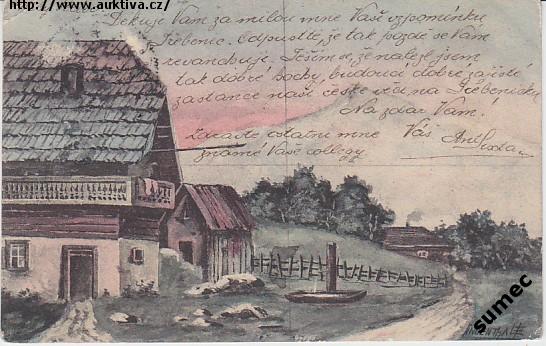 http://www.auktiva.cz/
Děkuje Vám za milou mne Vaši vzpomínku
Třebenic. Odpusťte, je tak pozdě se Vám
revanchuje. Těším se, že nalezl jsem
tak dobré hochy, budoucí dobré zajisté
zastance naší české věci na Třebenicku
Na zdar Vám!
Zdravte ostatní mne Váš Ant.
známé Vaše collegy
sumec